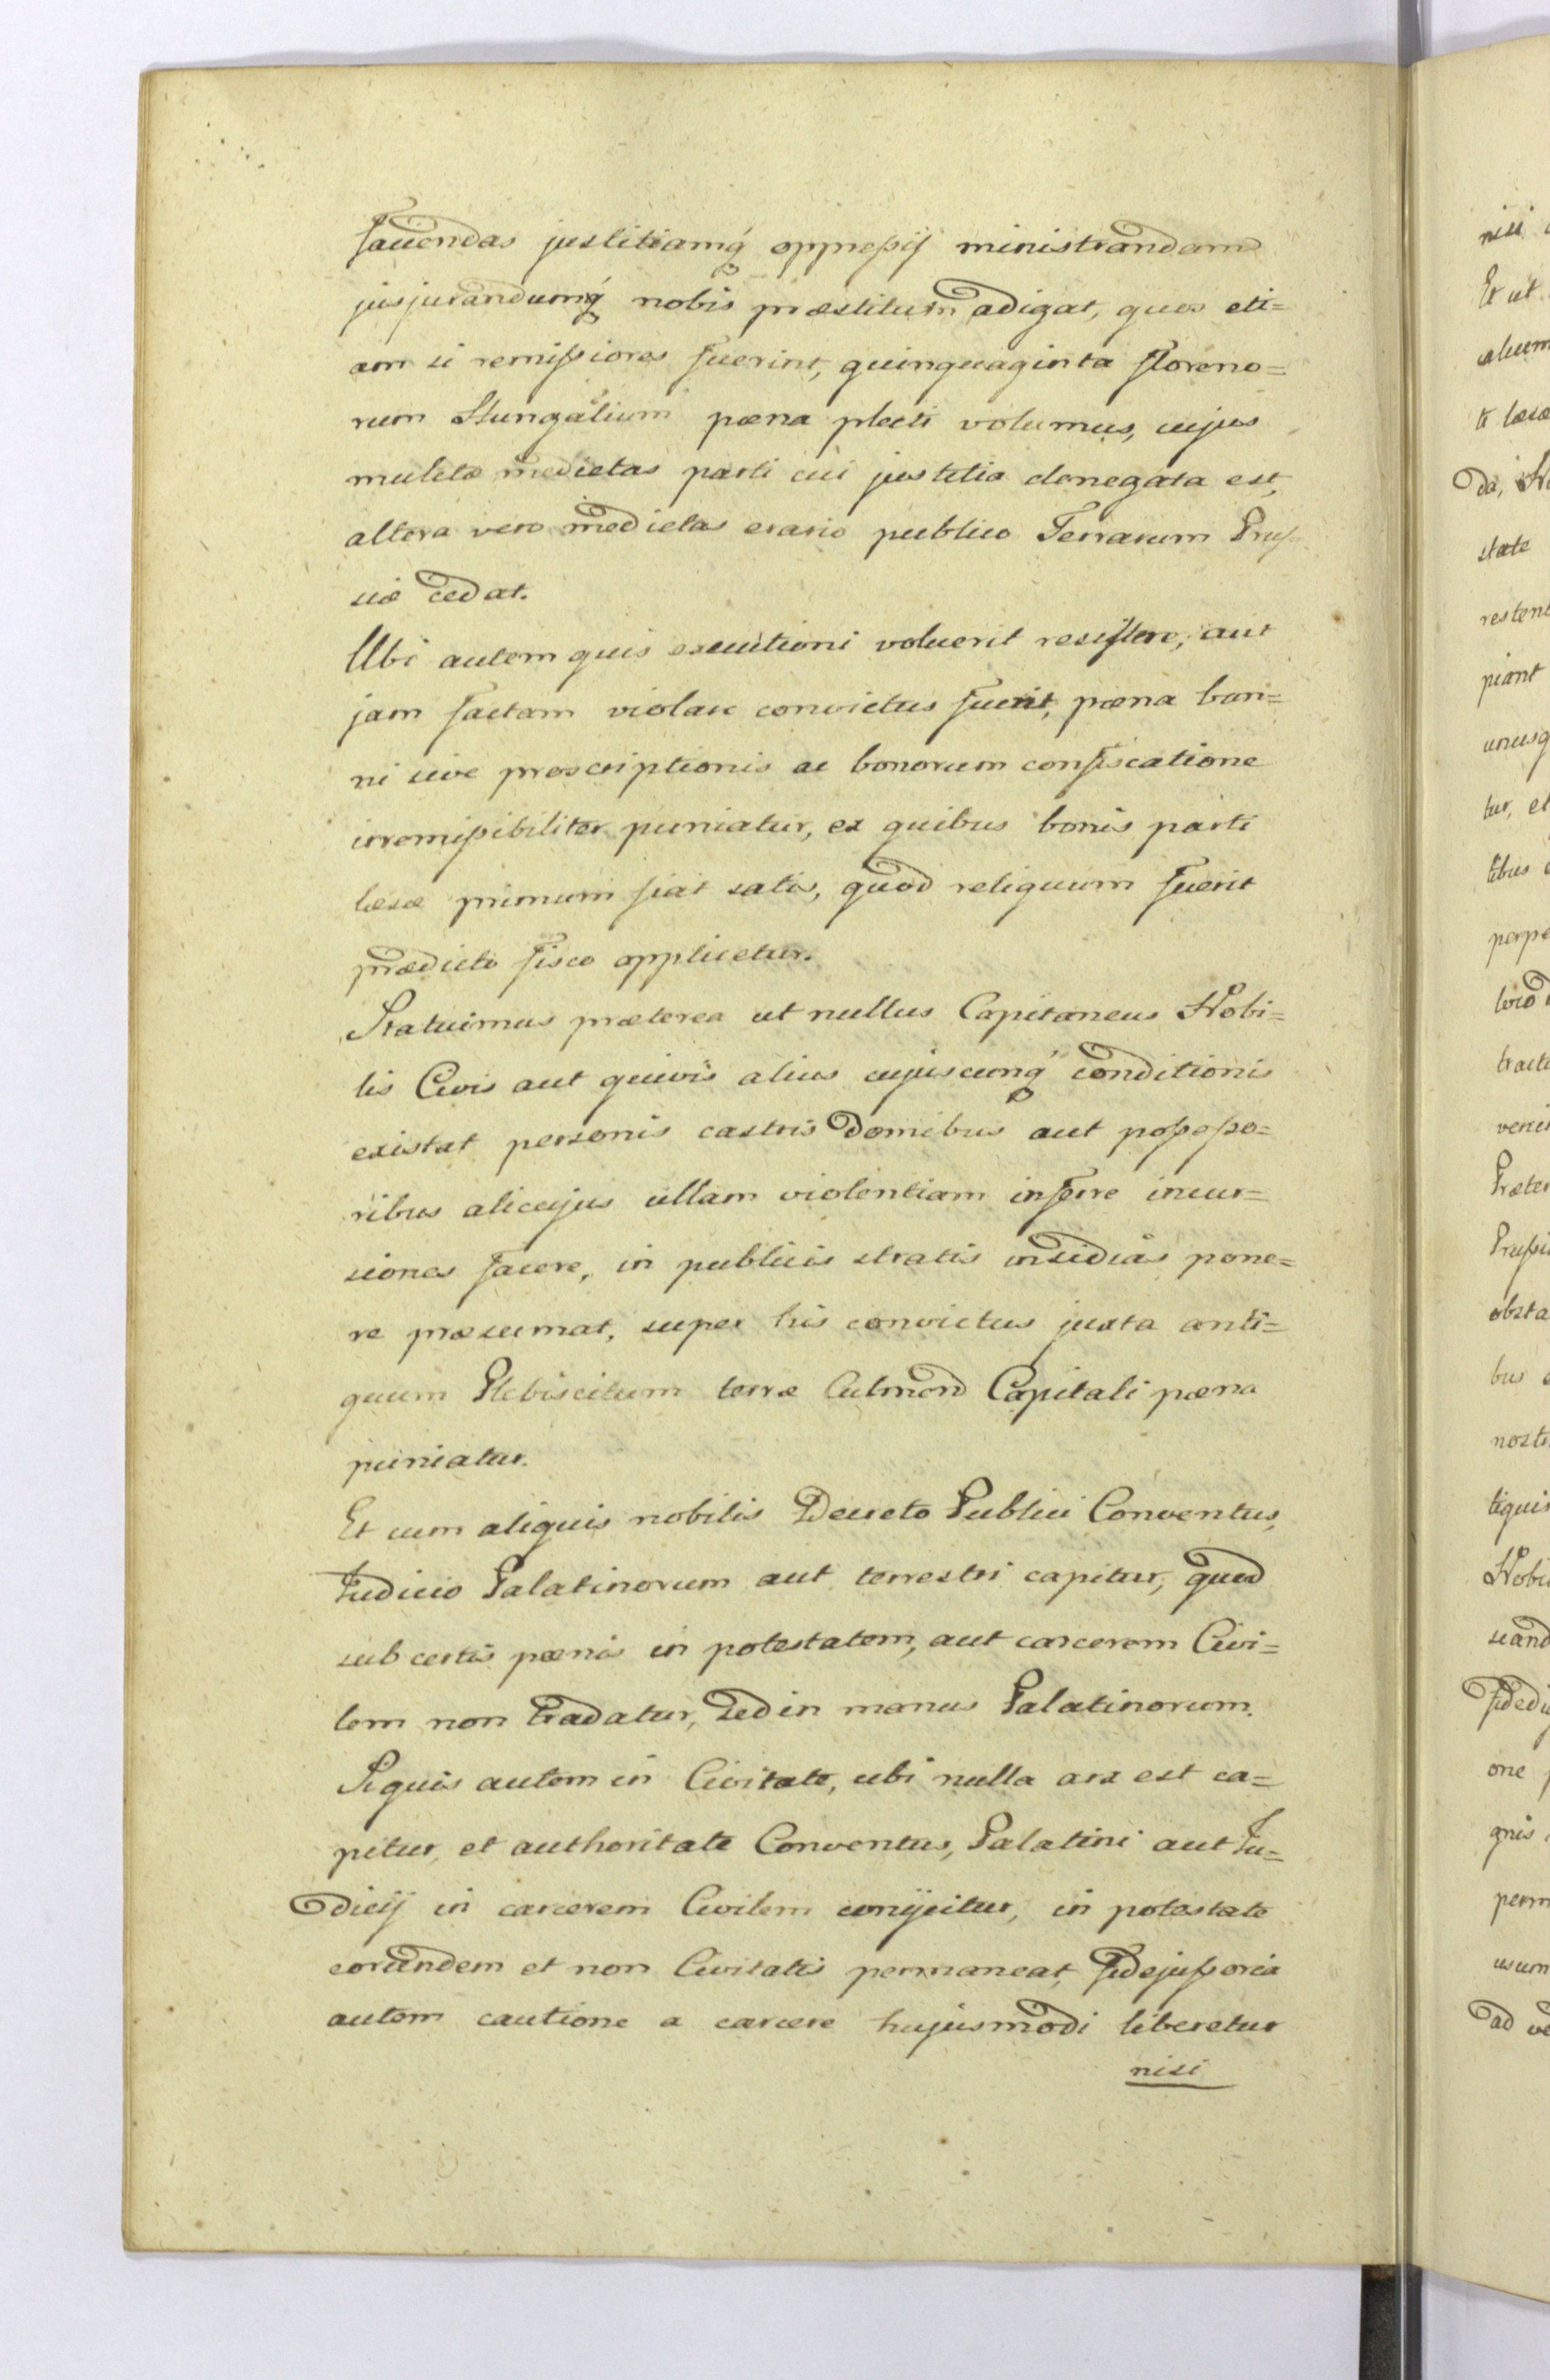 faciendas justitiamq́ oppressis ministrandam
jusjurandumq́ nobis præstitum adigat, quos eti=
am si remissiores fuerint, quinquaginta floreno=
rum Hungalium pæna plecti volumus, cujus
mulctæ medietas parti cui justitia denegata est,
altera vero medietas erario publico Terrarum Prus
siæ cedat.
Ubi autem quis executioni voluerit resistere, aut
jam factam violare convictus fuerit, pæna ban=
ni sive proscriptionis ac bonorum confiscatione
irremissibiliter puniatur, ex quibus bonis parti
læsæ primum fiat satis, quod reliquum fuerit
prædicto fisco applicetur.
Statuimus præterea ut nullus Capitaneus Nobi=
lis Civis aut quivis alius cujuscunq́ conditionis
existat personis castris domibus aut possesso=
ribus alicujus ullam violentiam inferre incur=
siones facere, in publicis stratis insidias pone=
re præsumat, super his convictus juxta anti=
quum Plebiscitum terræ Culmend Capitali pæna
puniatur.
Et cum aliquis nobilis Decreto Publici Conventus,
Judicio Palatinorum aut terrestri capitur, quod
sub certis pænis in potestatem, aut carcerem Civi=
lem non tradatur, sed in manus Palatinorum.
Siquis autem in Civitate, ubi nulla arx est ca=
pitur, et authoritate Conventus, Palatini aut Ju=
dicij in carcerem Civilem conijcitur, in potestate
eorundem et non Civitatis permaneat, fidejussoria
autem cautione a carcere hujusmodi liberetur
nisi
nisi
Et ut
alium
te læsæ
da, No
state
restent
piant
unusq
tur, et
libus
perpe
loco
tracte
venie
Præter
Prussi
obsta
bus
nostr
tiquis
Nobi
ciand
fidedi
one
gnis
perm
usum
ad ve